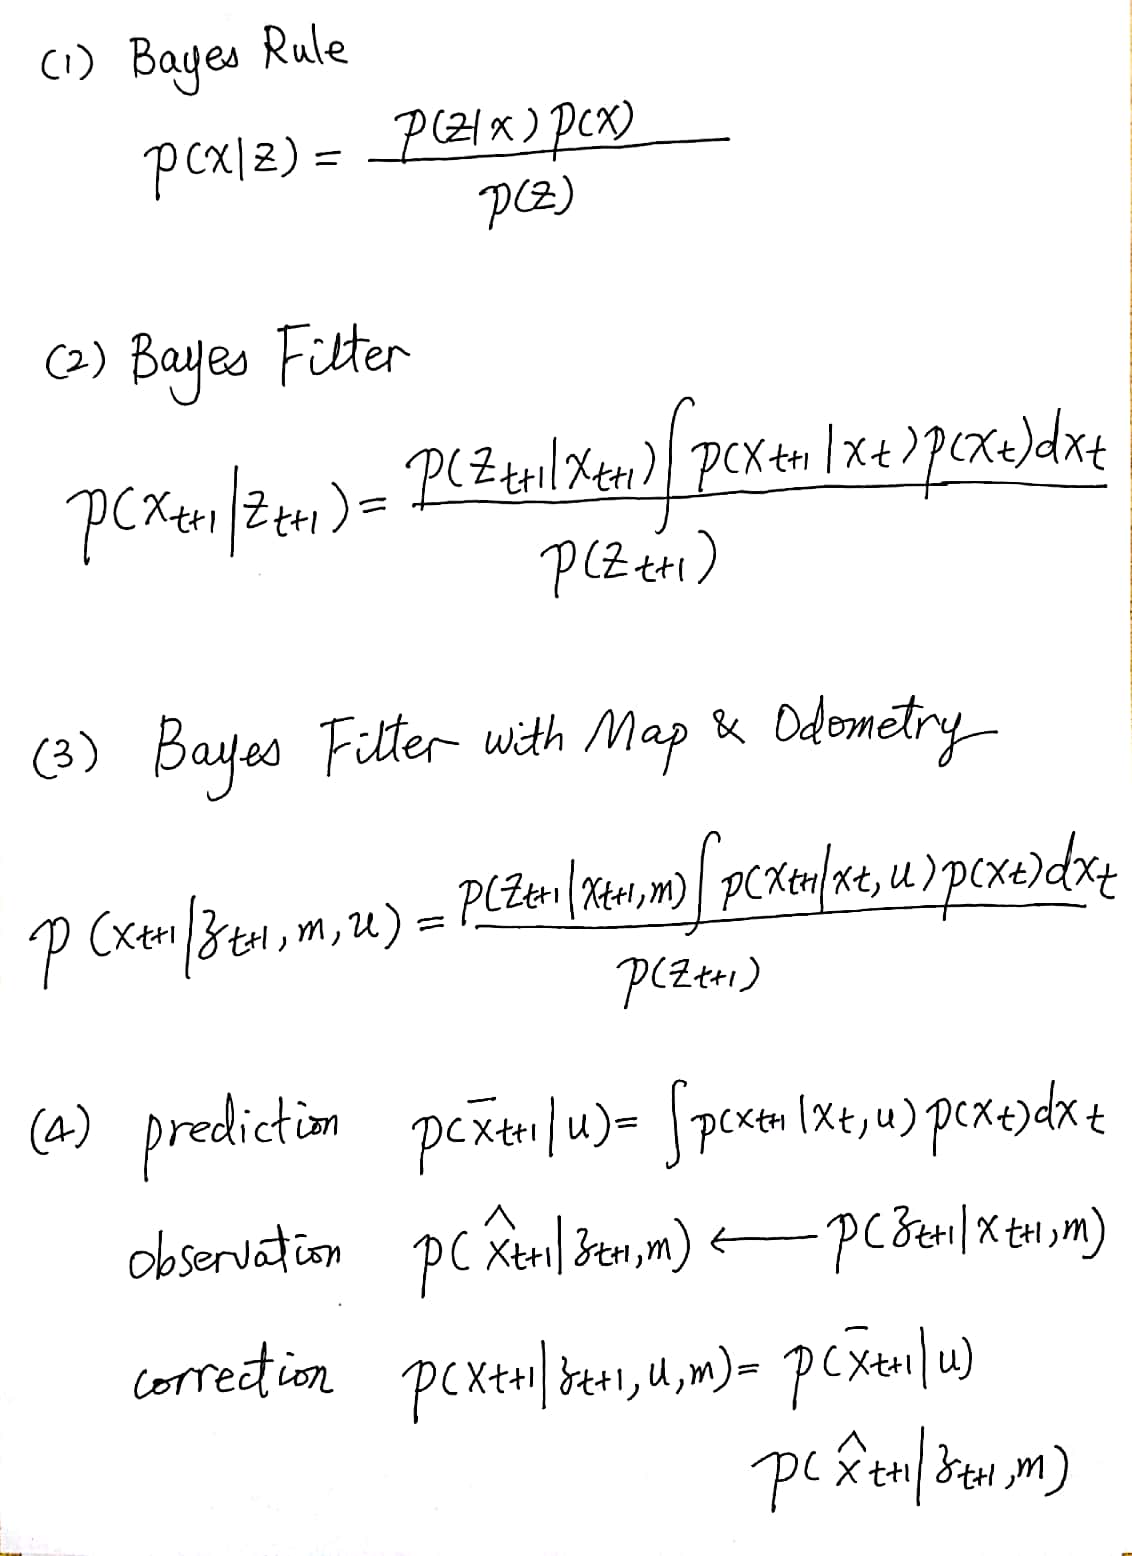 (1) Bayes Rule
p(x|z) = p(z|x) p(x) / p(z)
(2) Bayes Filter
p(x_{t+1}|z_{t+1}) = p(z_{t+1}|x_{t+1}) ∫ p(x_{t+1}|x_t) p(x_t) dx_t / p(z_{t+1})
(3) Bayes Filter with Map & Odometry
p(x_{t+1}|z_{t+1}, m, u) = p(z_{t+1}|x_{t+1}, m) ∫ p(x_{t+1}|x_t, u) p(x_t) dx_t / p(z_{t+1})
(4) prediction p(x̄_{t+1}|u) = ∫ p(x_{t+1}|x_t, u) p(x_t) dx_t
observation p(x̂_{t+1}|z_{t+1}, m) ← p(z_{t+1}|x_{t+1}, m)
correction p(x_{t+1}|z_{t+1}, u, m) = p(x̄_{t+1}|u)
p(x̂_{t+1}|z_{t+1}, m)